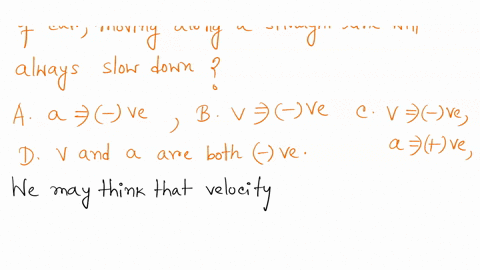 moving along a straight
always slow down ?
A. a ⇒ (-) ve , B. V ⇒ (-) ve C. V ⇒ (-) ve,
a ⇒ (+) ve,
D. V and a are both (-) ve.
We may think that velocity